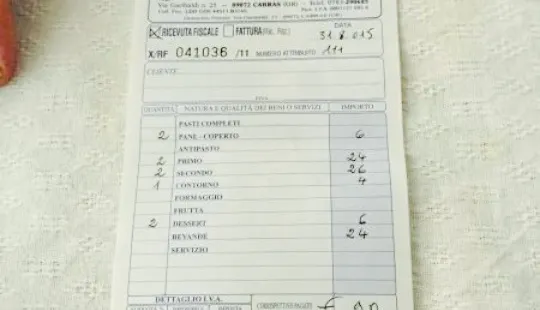 Via Garibaldi n. 25 - 09072 CABRAS (OR) - Telef. 0783-290685
RICEVUTA FISCALE FATTURA (Ric. Fisc.) DATA
31 8 015
X/RF 041036 /11 NUMERO ATTRIBUITO 111
CLIENTE
P.IVA
QUANTITÀ NATURA E QUALITÀ DEI BENI O SERVIZI IMPORTO
PASTI COMPLETI
2 PANE - COPERTO 6
ANTIPASTO
2 PRIMO 24
2 SECONDO 26
1 CONTORNO 4
FORMAGGIO
FRUTTA
2 DESSERT 6
BEVANDE 24
SERVIZIO
DETTAGLIO I.V.A.
CORRISPETTIVO PAGATO € 90